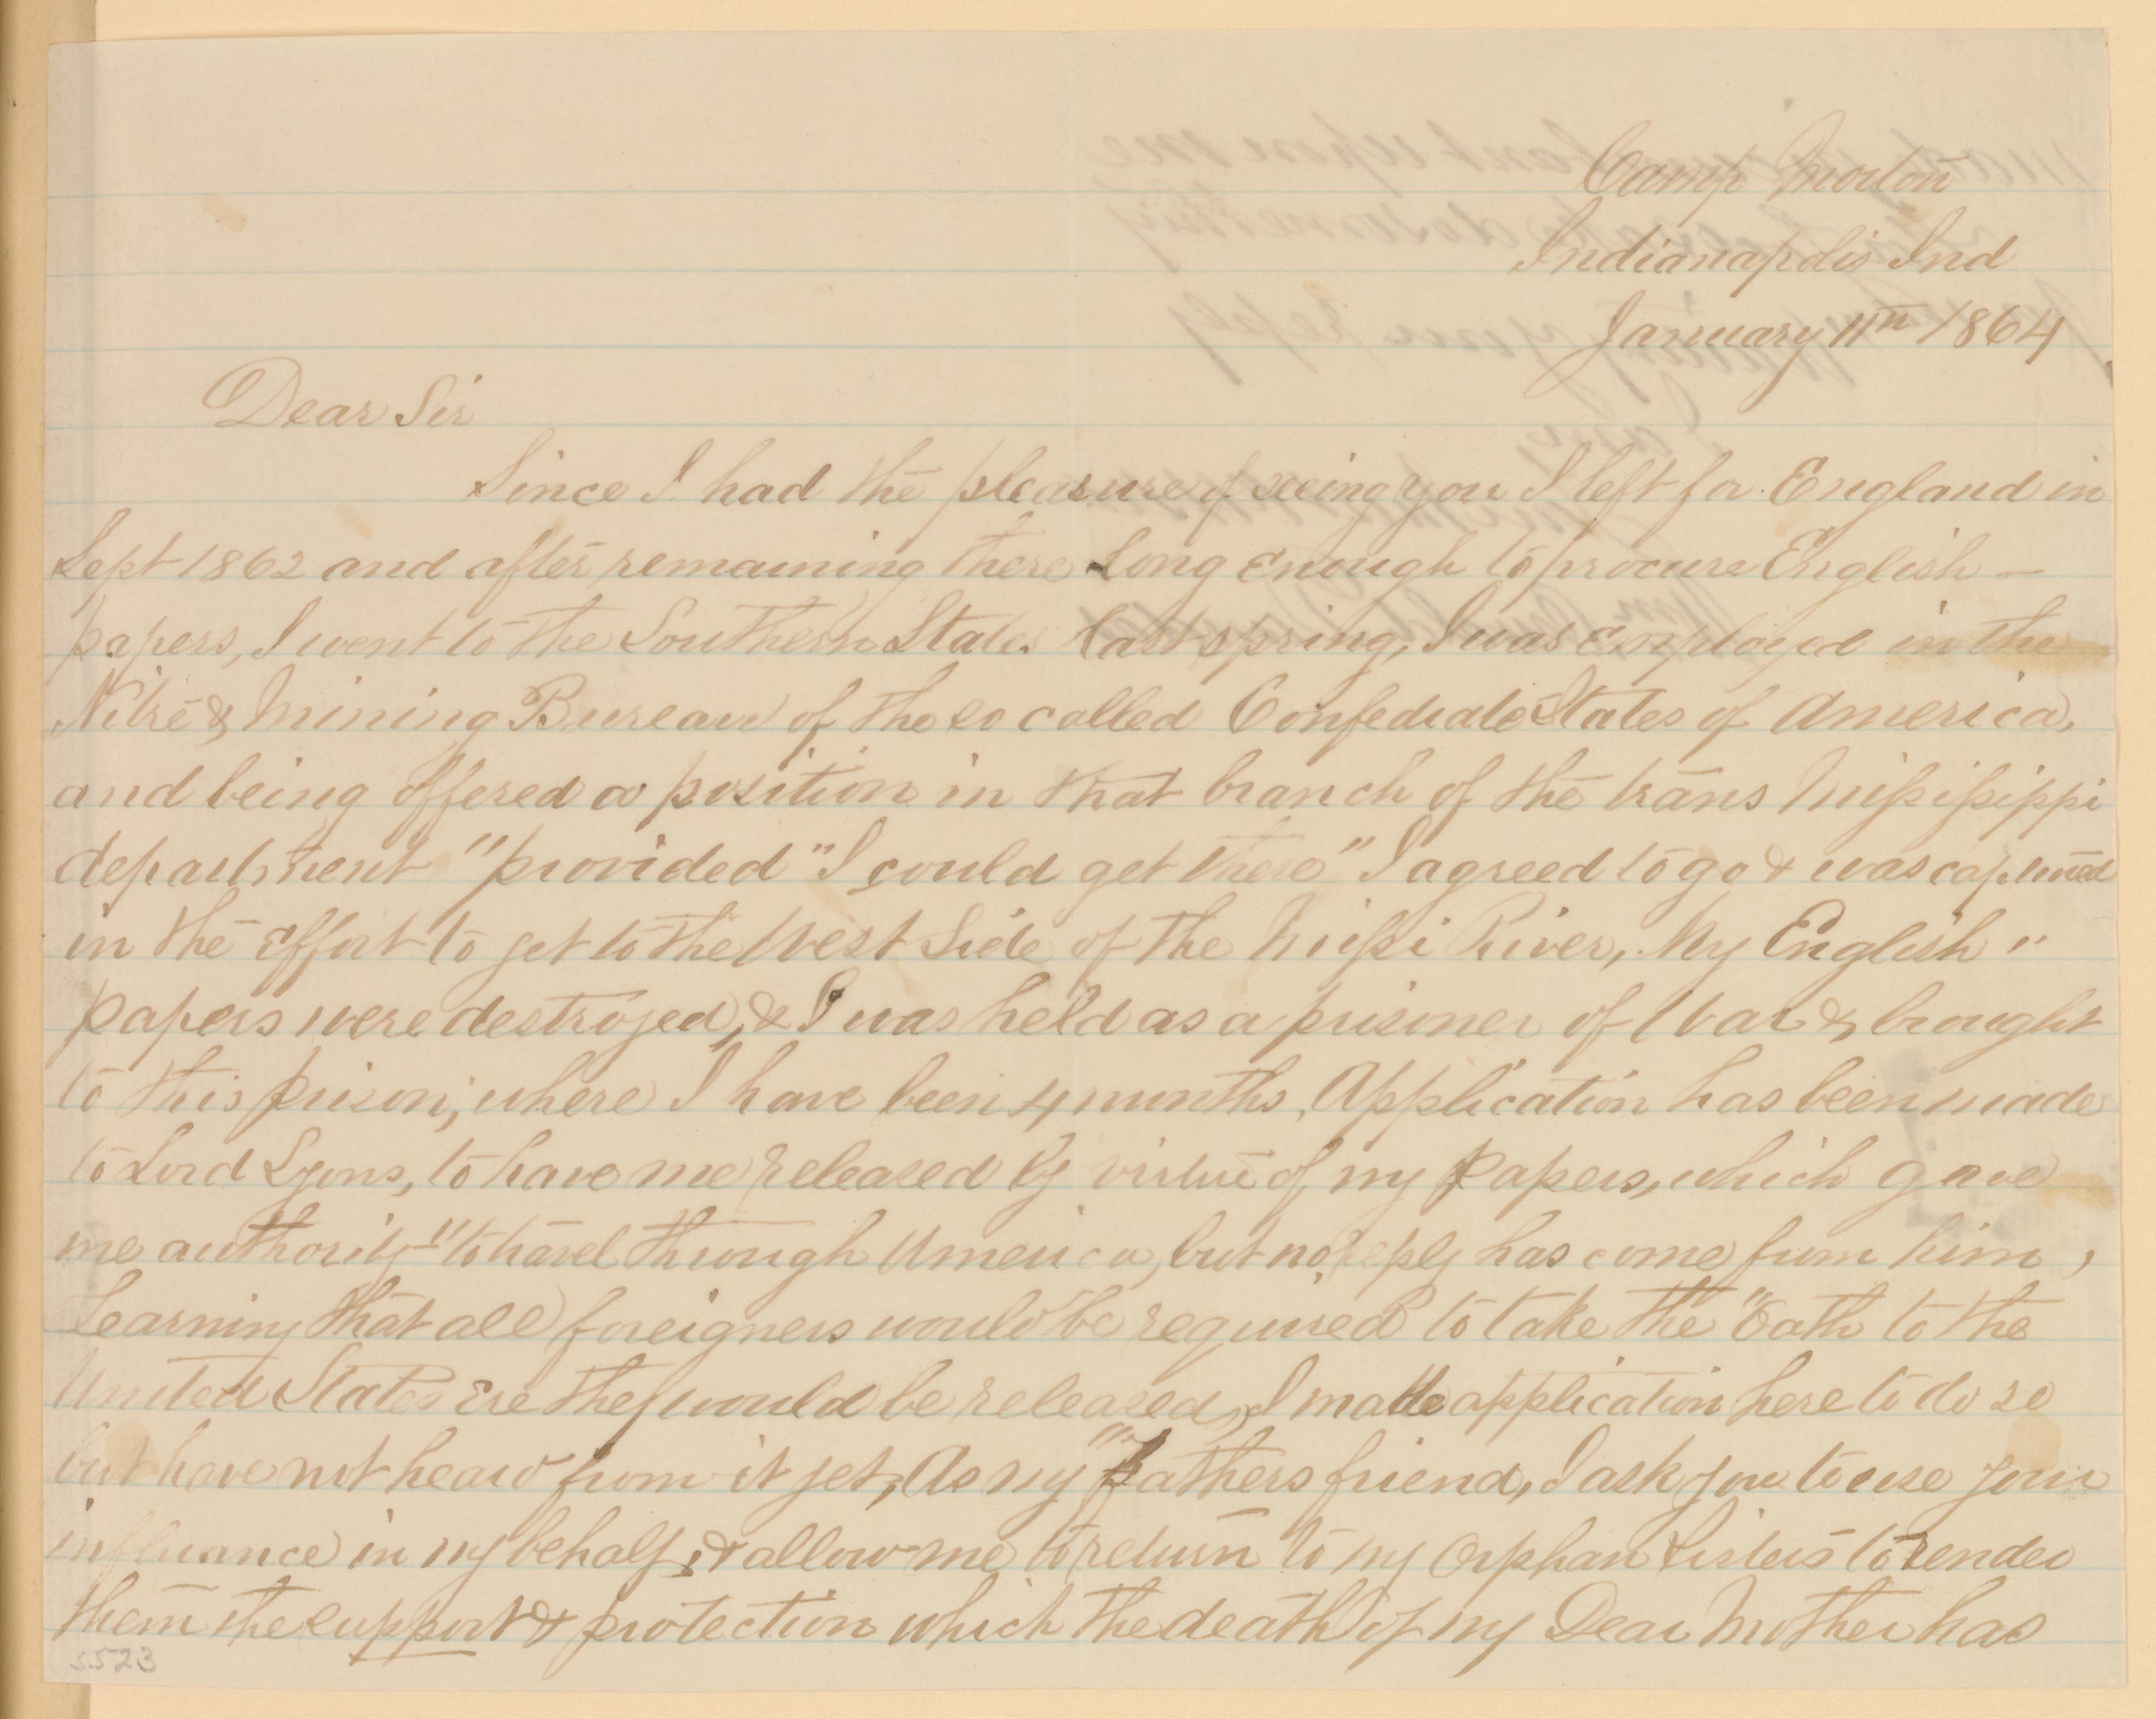 Camp Morton
Indianapolis Ind
January 11th 1864
Dear Sir
Since I had the pleasure of seeing you I left for England in
Sept 1862 and after remaining there long enough to procure English –
papers, I went to the Southern States last spring, I was employed in the
Nitre & Mining Bureau of the so called Confederate States of America,
and being offered a position in that branch of the trans Mississippi
department "provided" I could get there" I agreed to go & was captured
in the effort to get to the West Side of the Missi River, My English "
papers were destroyed, & I was held as a prisoner of War & brought
to this prison, where I have been 4 months, Application has been made
to Lord Lyons, to have me released by virtue of my papers, which gave
me authority "to travel through America, but no reply has come from him,
Learning that all foreigners would be required to take the "Oath to the
United States ere they would be released, I made application here to do so
but have not heard from it yet, As my "fathers friend, I ask you to use your
influance in my behalf, & allow me to return to my orphan Sisters to render
them the support & protection which the death of my Dear Mother has
5523